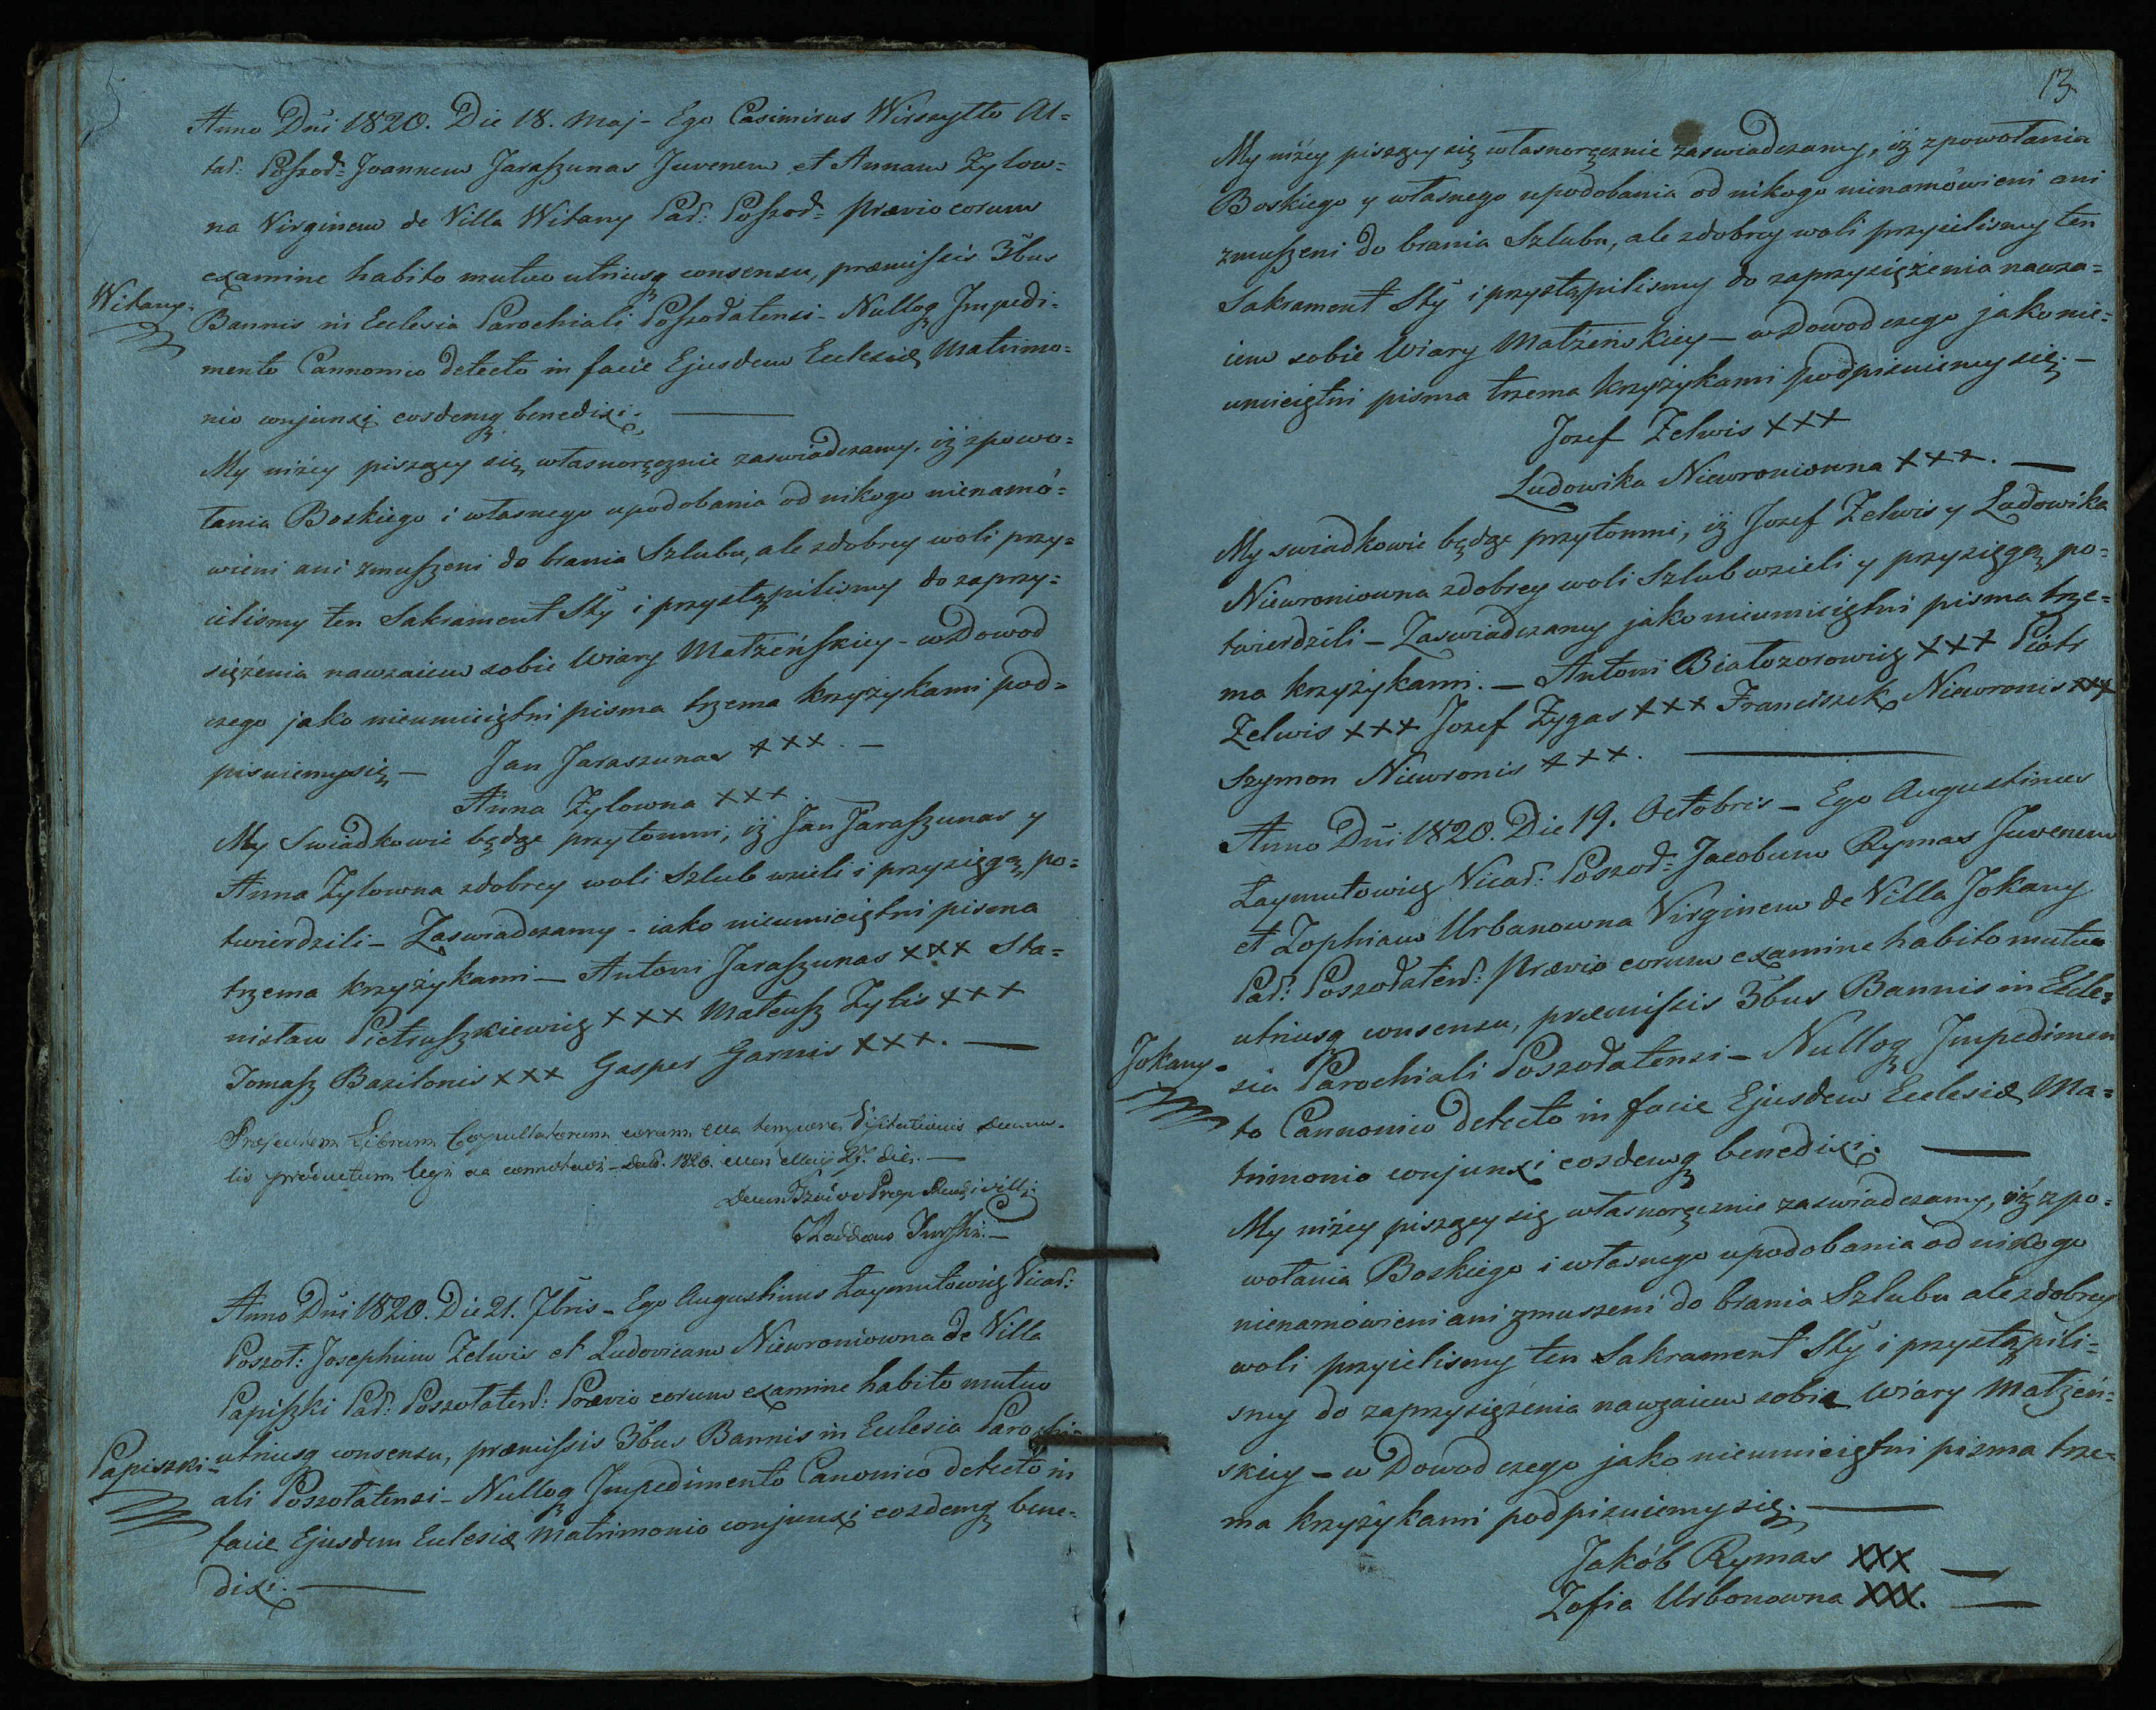 Anno Dñi 1820. Die 18. Maj - Ego Casimirus Wirszyłło Al=
tar: Poszod= Joannem Jaraszunas Juvenem et Annam Zylow=
na Virginem de Villa Witany Par: Poszod= Prævio eorum
examine habito mutuo utriusq consensu, præmissis 3bus
Witany.
Bannis in Ecclesia Parochiali Poszodatensi - Nulloq Impedi=
mento Cannonico detecto in facie Ejusdem Ecclesiæ Matrimo=
nio conjunxi eosdemq benedixi. —
My niżey piszący się własnoręcznie zaswiadczamy, iż z powo=
łania Boskiego i własnego upodobania od nikogo nienamó=
wieni ani zmuszeni do brania Szlubu, ale zdobrey woli przy=
ielismy ten Sakrament Sty i przystąpilismy do zaprzy=
siężenia nawzaiem sobie Wiary Małżeńskiey - w Dowod
czego jako nieumieiętni pisma trzema krzyżykami pod=
pisuiemy się — Jan Jaraszunas XXX. —
Anna Zylowna XXX.
My Swiadkowie będąc przytomni, iż Jan Jaraszunas y
Anna Zylowna zdobrey woli Szlub wzieli i przysięgą po=
twierdzili - Zaswiadczamy - iako nieumieiętni pisma
trzema krzyżykami — Antoni Jaraszunas XXX Sta=
nisław Pietraszkiewicz XXX Mateusz Zylis XXX
Tomasz Bazilonis XXX Gasper Garnis XXX. —
Præsentem Librum Copulatorum tempore Visitationis Decana=
lis productum legi ac connotavi - Dat. 1820. Maii 27. die. —
Thaddæus Jurski. —
Anno Dñi 1820. Die 21. 7bris - Ego Augustinus Łaymutowicz Vicar:
Poszot: Josephum Zelwis et Ludovicam Niewroniowna de Villa
Papiszki Par: Poszotaten: Prævio eorum examine habito mutuo
Papiszki -
utriusq consensu, præmissis 3bus Bannis in Ecclesia Parochi=
ali Poszotatensi - Nulloq Impedimento Canonico detecto in
facie Ejusdem Ecclesiæ Matrimonio conjunxi eosdemq bene=
dixi. —
13
My niżey piszący się własnoręcznie zaswiadczamy, iż z powołania
Boskiego y własnego upodobania od nikogo nienamówieni ani
zmuszeni do brania Szlubu, ale zdobrey woli przyielismy ten
Sakrament Sty i przystąpilismy do zaprzysiężenia nawza=
iem sobie Wiary Małżeńskiey — w Dowod czego jako nie=
umieiętni pisma trzema krzyżykami podpisuiemy się. —
Jozef Zelwis XXX
Ludowika Niewroniowna XXX. —
My swiadkowie będąc przytomni, iż Jozef Zelwis y Ludowika
Niewroniowna zdobrey woli Szlub wzieli y przysięgą po=
twierdzili — Zaswiadczamy jako nieumieiętni pisma trze=
ma krzyżykami. — Antoni Białozorowicz XXX Piotr
Zelwis XXX Jozef Zygas XXX Franciszek Niewronis XXX
Szymon Niewronis XXX. —
Anno Dñi 1820. Die 19. Octobris — Ego Augustinus
Łaymutowicz Vicar: Poszod= Jacobum Rymas Juvenem
et Zophiam Urbanowna Virginem de Villa Jokany
Par: Poszodaten: Prævio eorum examine habito mutuo
utriusq consensu, præmissis 3bus Bannis in Eccle=
Jokany -
sia Parochiali Poszodatensi — Nulloq Impedimen
to Cannonico detecto in facie Ejusdem Ecclesiæ Ma=
trimonio conjunxi eosdemq benedixi. —
My niżey piszący się własnoręcznie zaswiadczamy, iż z po=
wołania Boskiego i własnego upodobania od nikogo
nienamówieni ani zmuszeni do brania Szlubu ale zdobrey
woli przyielismy ten Sakrament Sty i przystąpili=
smy do zaprzysiężenia nawzaiem sobie Wiary Małżeń=
skiey — w Dowod czego jako nieumieiętni pisma trze=
ma krzyżykami podpisuiemy się. —
Jakób Rymas XXX —
Zofia Urbonowna XXX. —